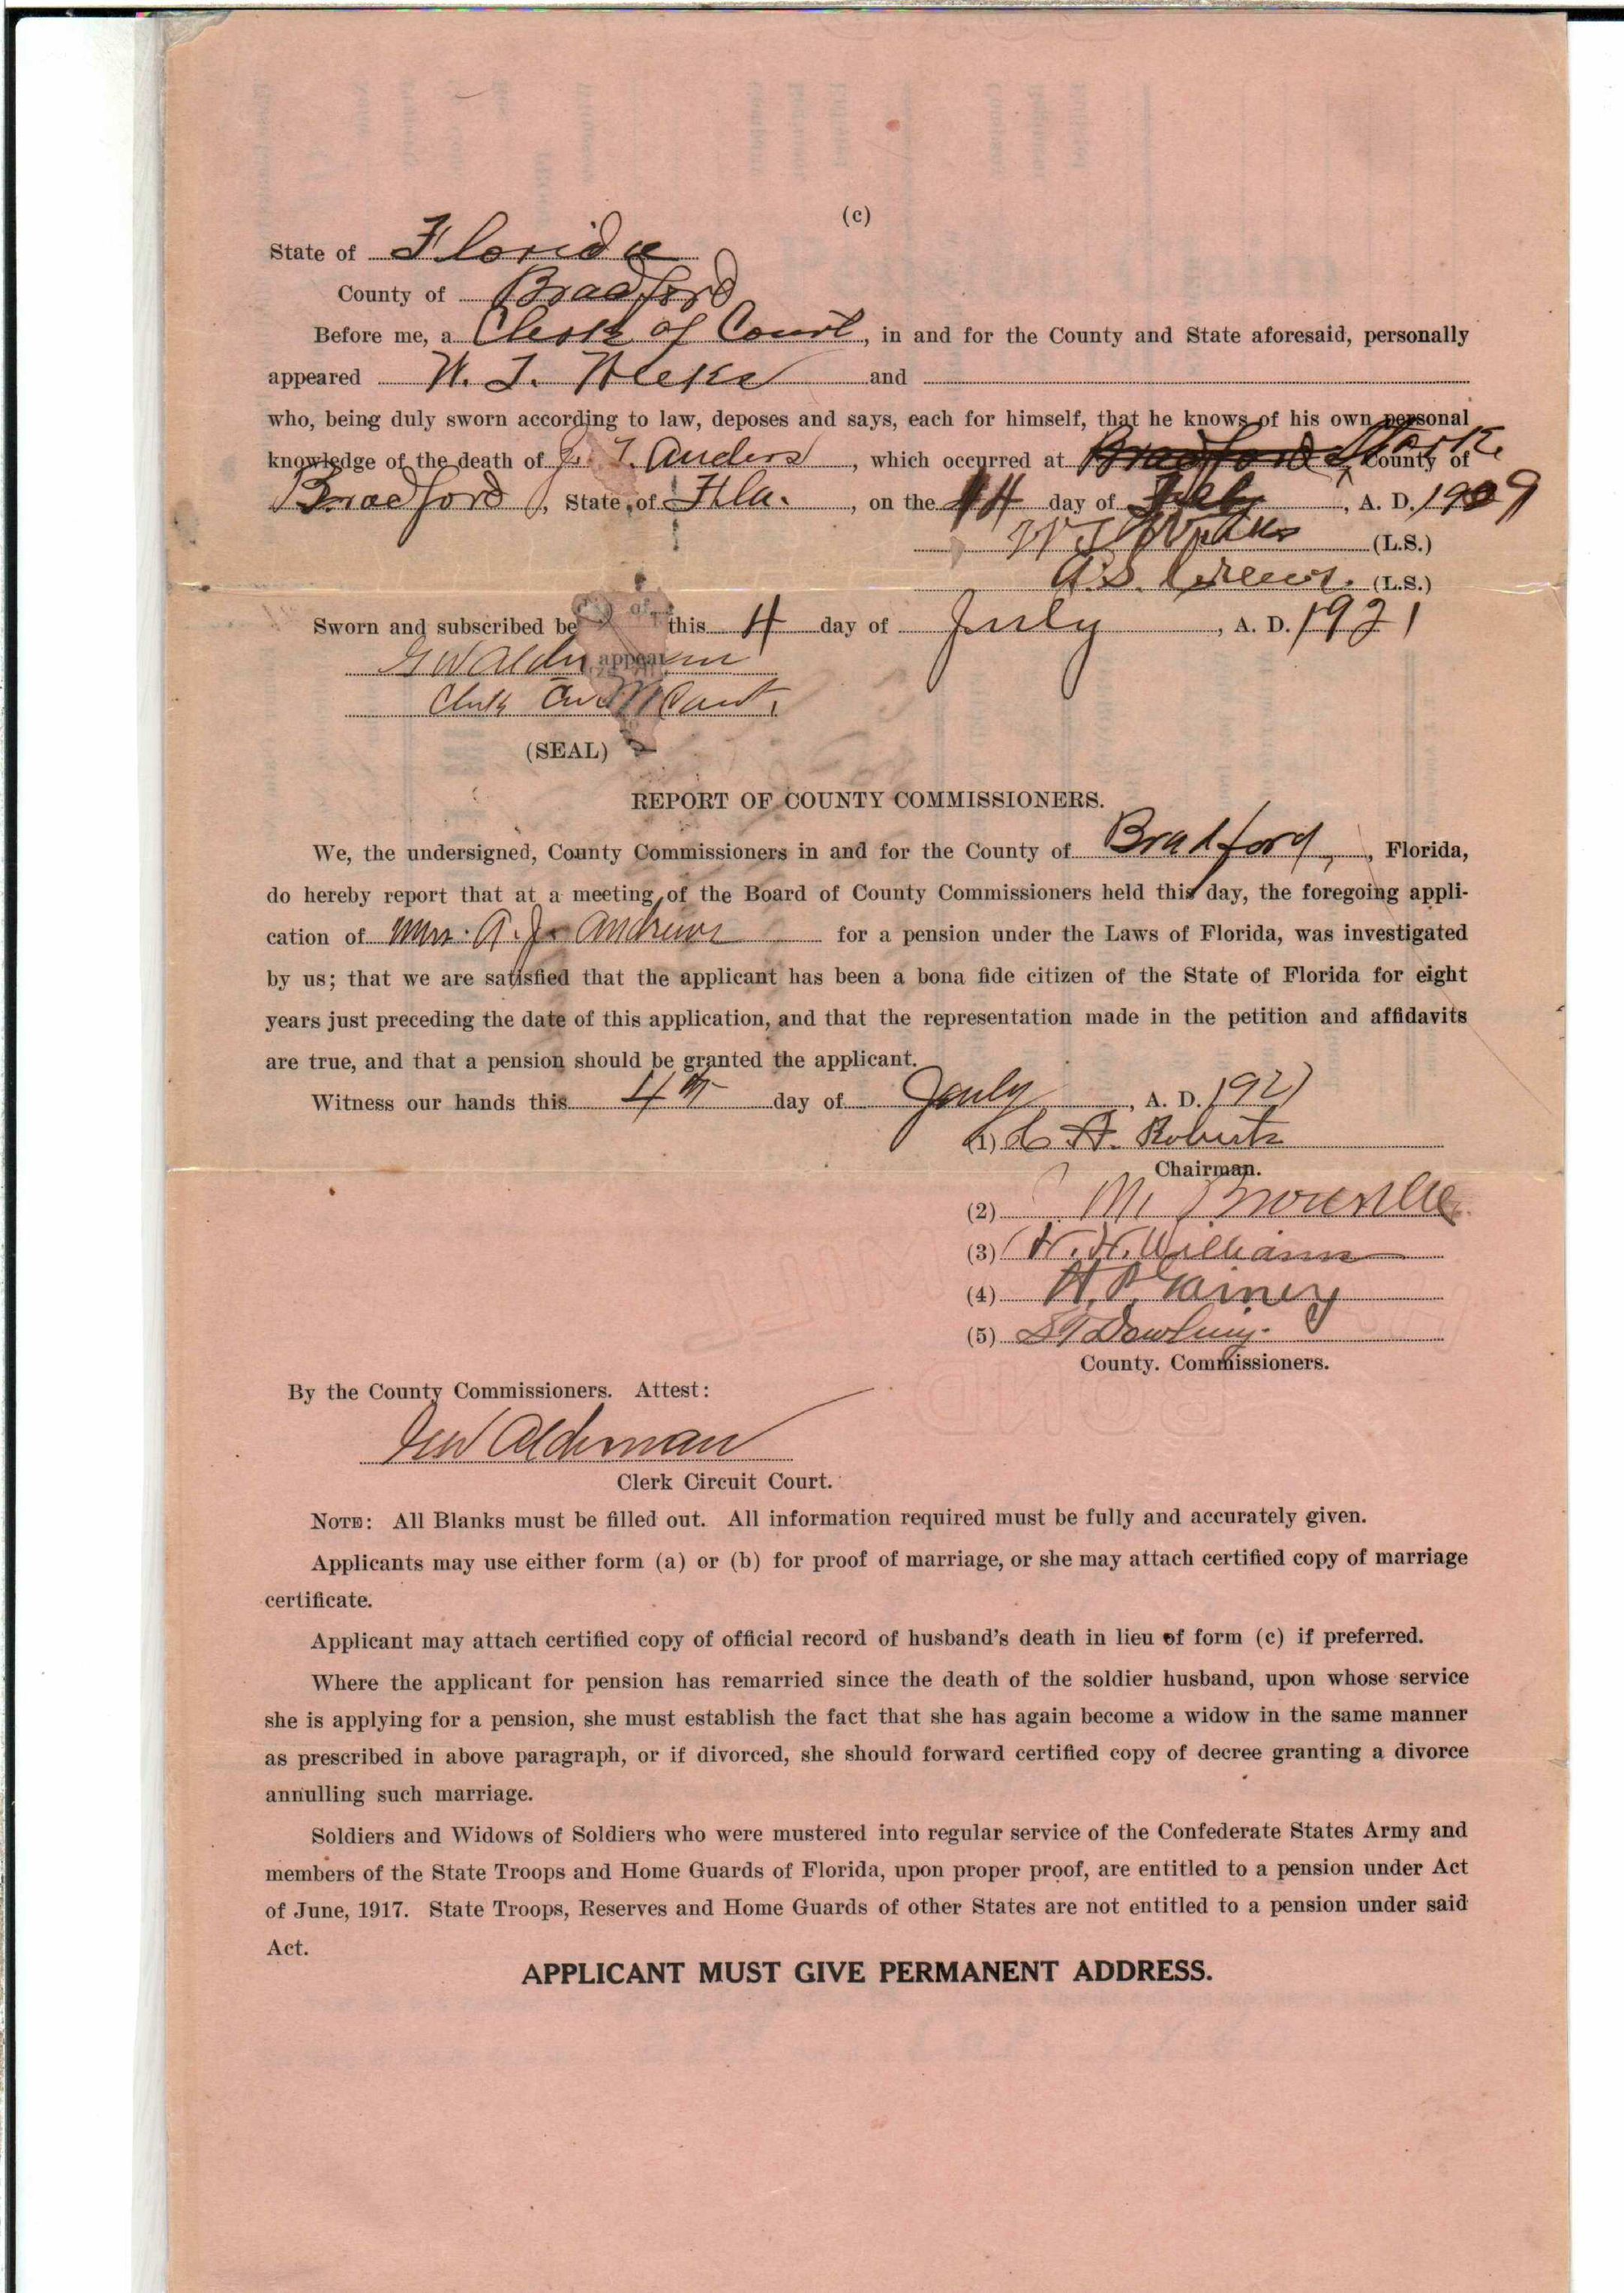 (c)
State of Florida
County of Bradford
Before me, a Clerk of Court, in and for the County and State aforesaid, personally
appeared W. T. Weeks and
who, being duly sworn according to law, deposes and says, each for himself, that he knows of his own personal
knowledge of the death of J. T. Anders, which occurred at Bradford Stark, County of
Bradford, State of Fla., on the day of, A. D. 1909
(L.S.)
A.S. Crews. (L.S.)
Sworn and subscribed be this 4 day of July, A. D. 1921
G W Alderman
Clerk Court.
(SEAL)
REPORT OF COUNTY COMMISSIONERS.
We, the undersigned, County Commissioners in and for the County of Bradford, Florida,
do hereby report that at a meeting of the Board of County Commissioners held this day, the foregoing appli-
cation of Mrs. A. J. Andrews for a pension under the Laws of Florida, was investigated
by us; that we are satisfied that the applicant has been a bona fide citizen of the State of Florida for eight
years just preceding the date of this application, and that the representation made in the petition and affidavits
are true, and that a pension should be granted the applicant.
Witness our hands this 4th day of July, A. D. 1921
(1) A. Roberts
Chairman.
(2) M
(3) H. H. Williams
(4) H. P. Gainey
(5) Dowling.
County. Commissioners.
By the County Commissioners. Attest:
Geo W Alderman
Clerk Circuit Court.
NOTE: All Blanks must be filled out. All information required must be fully and accurately given.
Applicants may use either form (a) or (b) for proof of marriage, or she may attach certified copy of marriage
certificate.
Applicant may attach certified copy of official record of husband's death in lieu of form (c) if preferred.
Where the applicant for pension has remarried since the death of the soldier husband, upon whose service
she is applying for a pension, she must establish the fact that she has again become a widow in the same manner
as prescribed in above paragraph, or if divorced, she should forward certified copy of decree granting a divorce
annulling such marriage.
Soldiers and Widows of Soldiers who were mustered into regular service of the Confederate States Army and
members of the State Troops and Home Guards of Florida, upon proper proof, are entitled to a pension under Act
of June, 1917. State Troops, Reserves and Home Guards of other States are not entitled to a pension under said
Act.
APPLICANT MUST GIVE PERMANENT ADDRESS.